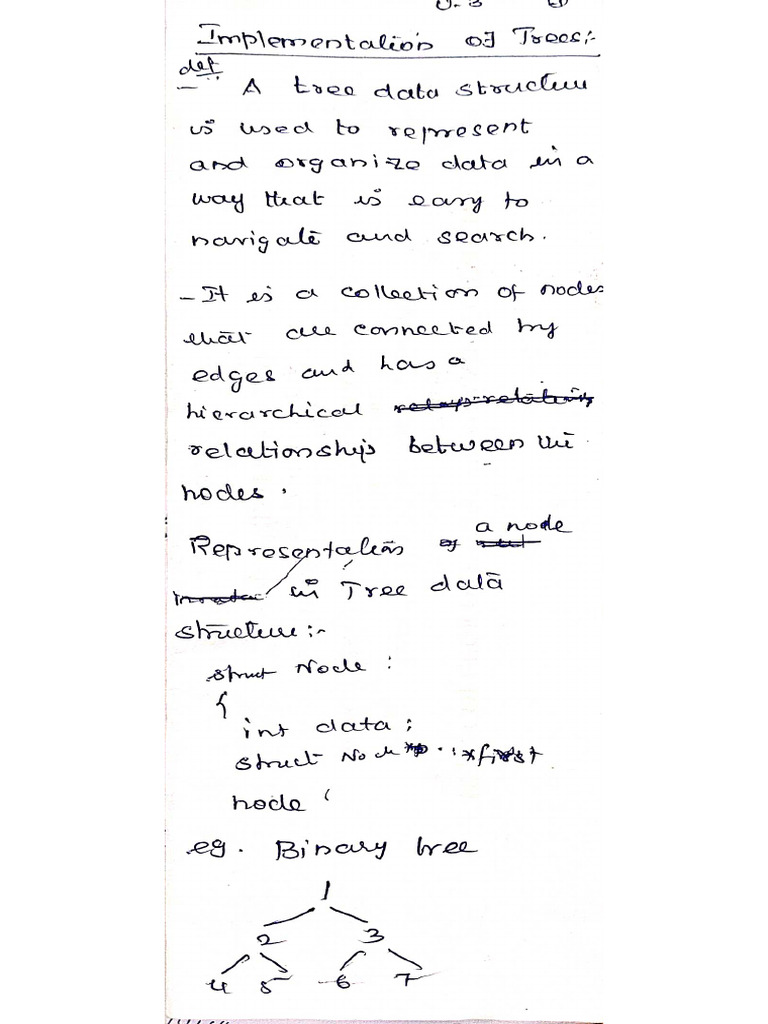 Implementation of Trees:-
def
A tree data structure
is used to represent
and organize data in a
way that is easy to
navigate and search.
- It is a collection of nodes
that are connected by
edges and has a
hierarchical
relationship between the
nodes.
a node
Representation of
in Tree data
structure:-
struct Node:
{
int data;
struct Node *first
node
eg. Binary tree
1
2 3
4 5 6 7